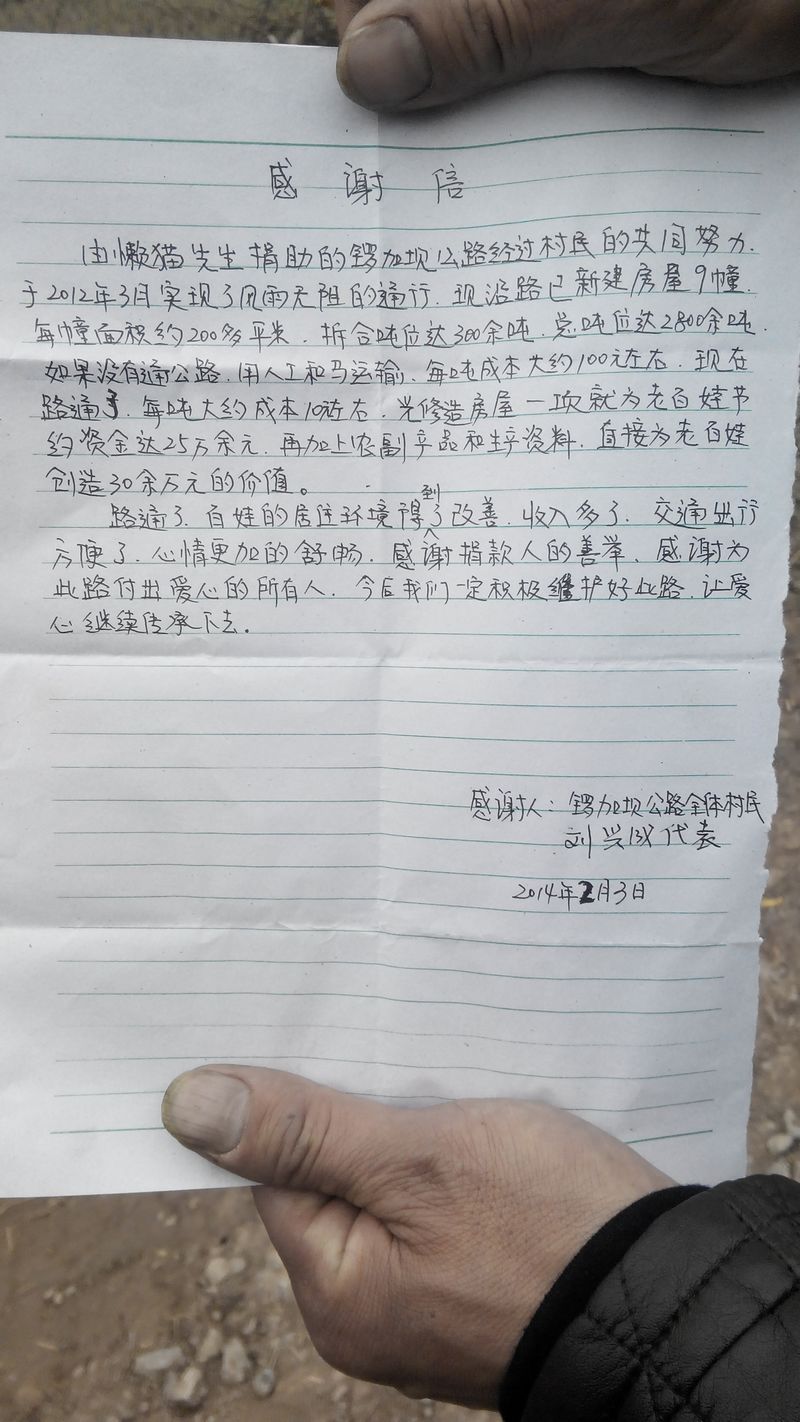 感谢信
由懒猫先生捐助的锣加坝公路经过村民的共同努力.
于2012年3月实现了风雨无阻的通行.现沿路已新建房屋9幢.
每幢面积约200多平米.拆合吨位达300余吨.总吨位达2800余吨.
如果没有通公路.用人工和马运输.每吨成本大约100元左右.现在
路通了.每吨大约成本10元左右.光修造房屋一项就为老百姓节
约资金达25万余元.再加上农副产品和生产资料.直接为老百姓
创造30余万元的价值。
路通了.百姓的居住环境得到了改善.收入多了.交通出行
方便了.心情更加的舒畅.感谢捐款人的善举.感谢为
此路付出爱心的所有人.今后我们一定积极维护好此路.让爱
心继续传承下去.
感谢人:锣加坝公路全体村民
刘兴成代表
2014年2月3日